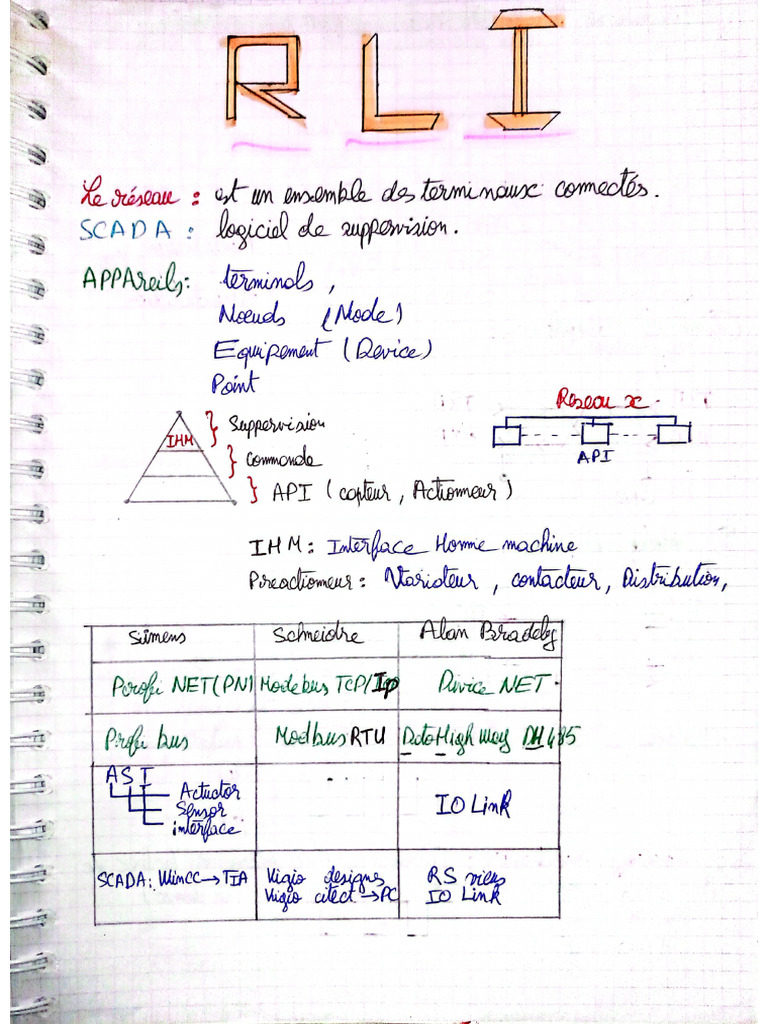 RLI
Le réseau : est un ensemble des terminaux connectés.
SCADA : logiciel de suppervision.
APPAreils: terminals,
Noeuds (Node)
Equipement (Device)
Point
Reseau x
IHM
Suppervision
Commande
API
API (capteur, Actionneur)
IHM: Interface Homme machine
Preactionneur: Variateur, contacteur, Distribution,
Siimens Schneidre Alan Braddley
Profi NET(PN) Modebus TCP/Ip Divice NET.
Profi bus Modbus RTU DataHigh Way DH485
ASI
Actuctor
Sensor
interface
IO Link
SCADA: Wincc→TIA Vigio designe RS views
Vigio citect→PC IO Link